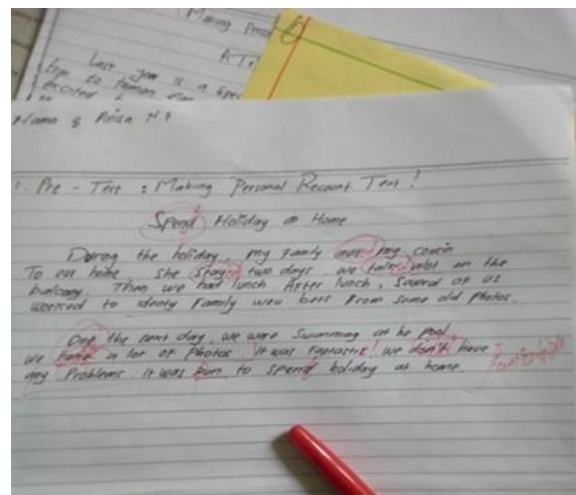 : Making Pers
Last year is a spec
trip to taman
excited
Nama : Anisa N.F
1. Pre - Test : Making Personal Recount Text !
Spend Holiday at Home
During the holiday, my Family and my cousin
To our home. she stays two days. we talks alot on the
balcony. Then we had lunch. After lunch, Several of us
worked to identy Family wew bers From some old Photos.
One the next day, we were Swimming at he pool.
we take a lot of Photos. It was Faptastic! we don't have
any Problems. it was Fun to spend holiday at home